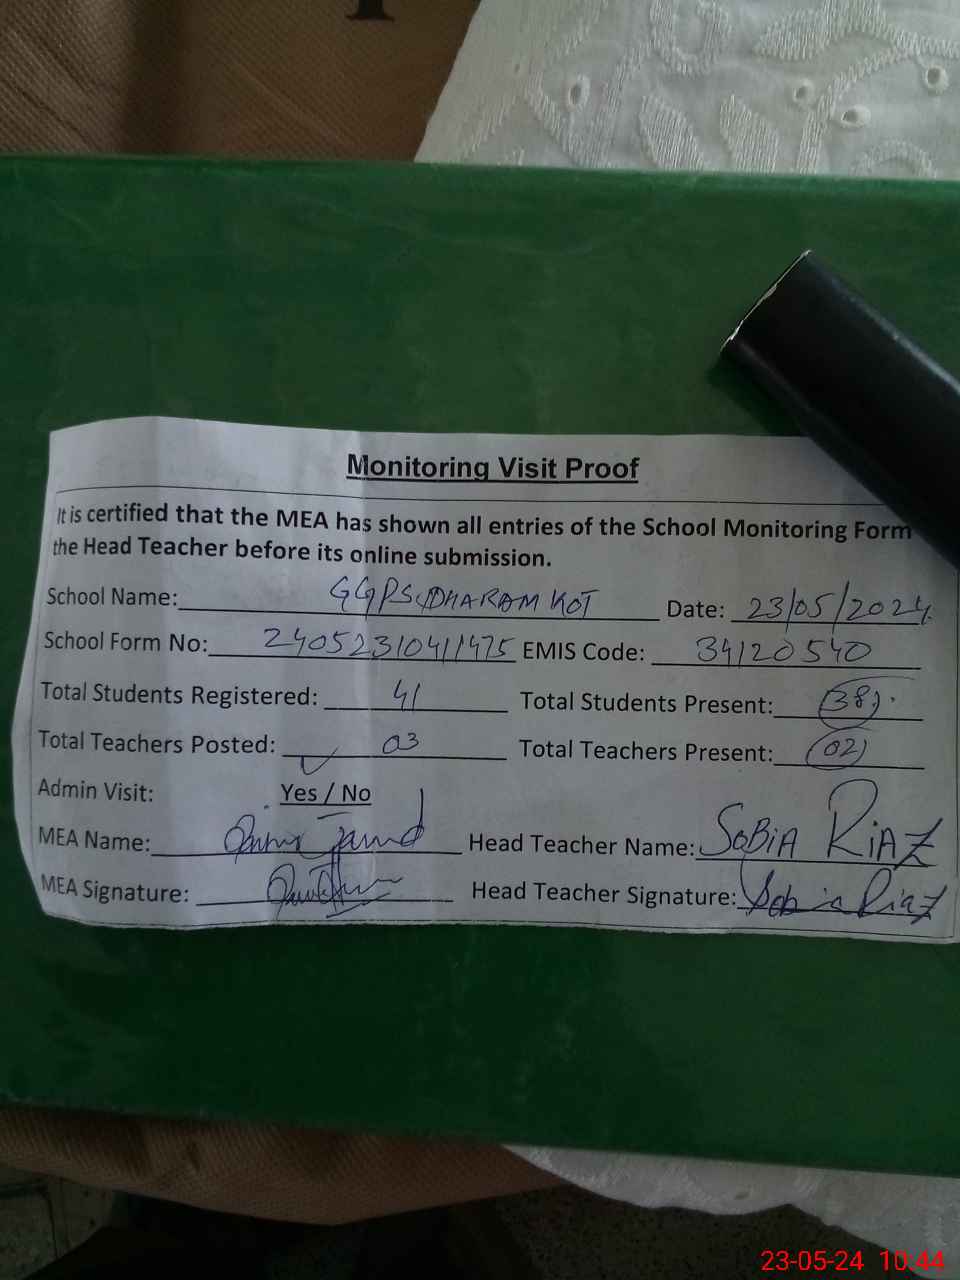 Monitoring Visit Proof
It is certified that the MEA has shown all entries of the School Monitoring Form
the Head Teacher before its online submission.
School Name: GGPS DHARAM KOT Date: 23/05/2024
School Form No: 24052310411475 EMIS Code: 34120540
Total Students Registered: 41 Total Students Present: 38
Total Teachers Posted: 03 Total Teachers Present: 02
Admin Visit: Yes / No
MEA Name: Head Teacher Name: SOBIA RIAZ
MEA Signature: Head Teacher Signature: Sobia Riaz
23-05-24 10:44